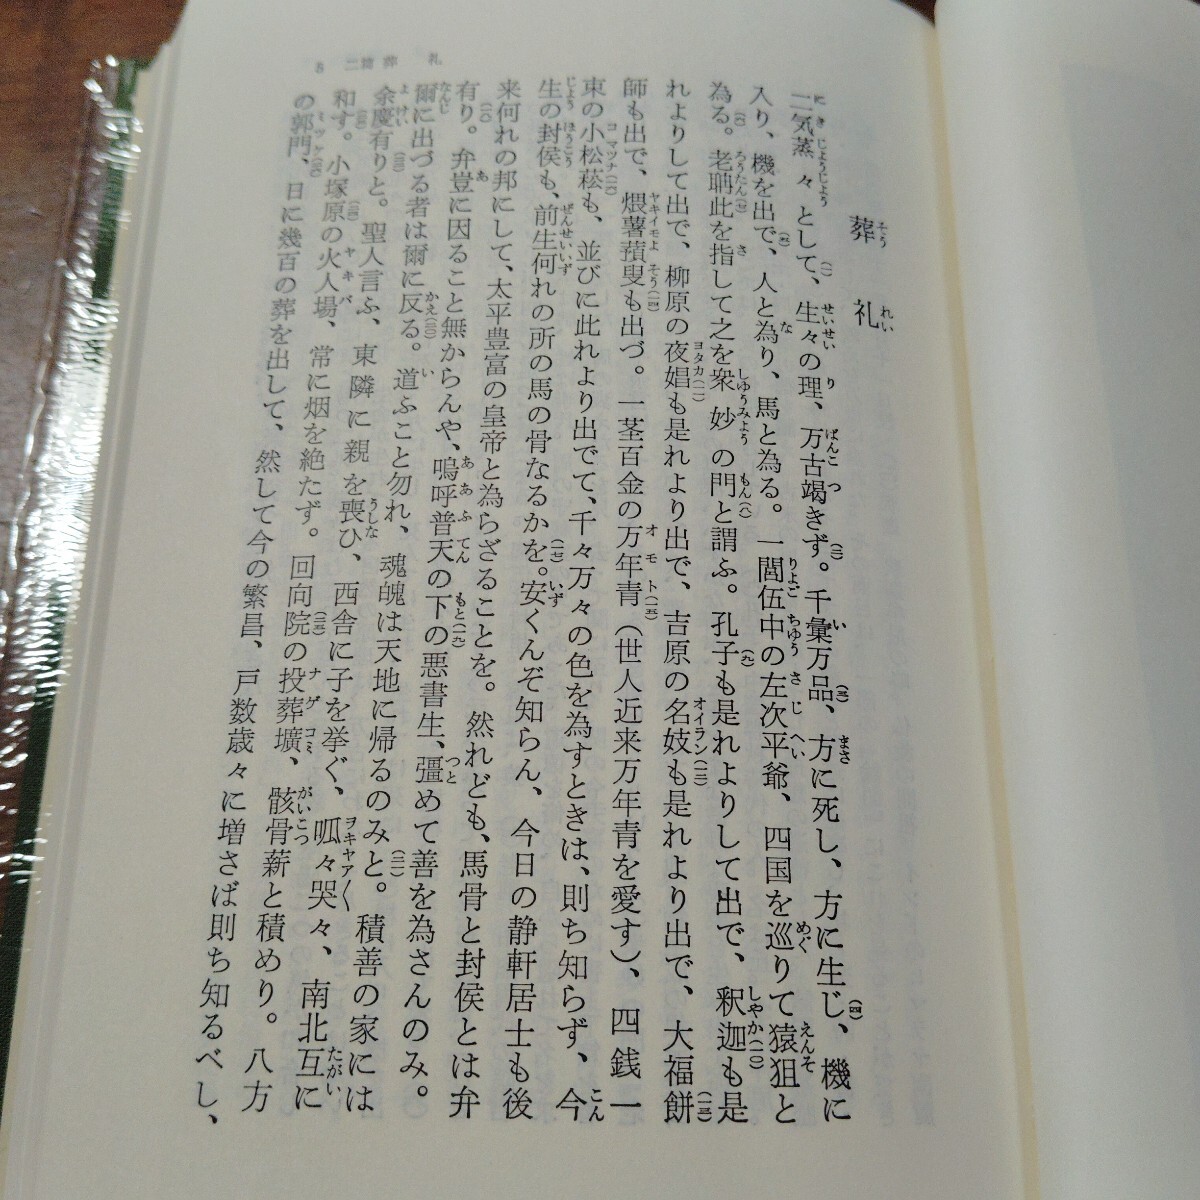 葬礼
二気蒸々として、生々の理、万古竭きず。千彙万品、方に死し、方に生じ、機に
入り、機を出で、人と為り、馬と為る。一閭伍中の左次平爺、四国を巡りて猿狙と
為る。老聃此を指して之を衆妙の門と謂ふ。孔子も是れよりして出で、釈迦も是
れよりして出で、柳原の夜娼も是れより出で、吉原の名妓も是れより出で、大福餅
師も出で、煨薯蕷叟も出づ。一茎百金の万年青（世人近来万年青を愛す）、四銭一
束の小松菘も、並びに此れより出でて、千々万々の色を為すときは、則ち知らず、今
生の封侯も、前生何れの所の馬の骨なるかを。安くんぞ知らん、今日の静軒居士も後
来何れの邦にして、太平豊富の皇帝と為らざることを。然れども、馬骨と封侯とは弁
有り。弁豈に因ること無からんや、嗚呼普天の下の悪書生、彊めて善を為さんのみ。
爾に出づる者は爾に反る。道ふこと勿れ、魂魄は天地に帰るのみと。積善の家には
余慶有りと。聖人言ふ、東隣に親を喪ひ、西舎に子を挙ぐ、呱々哭々、南北互に
和す。小塚原の火人場、常に烟を絶たず。回向院の投葬壙、骸骨薪と積めり。八方
の郭門、日に幾百の葬を出して、然して今の繁昌、戸数歳々に増さば則ち知るべし、
葬礼